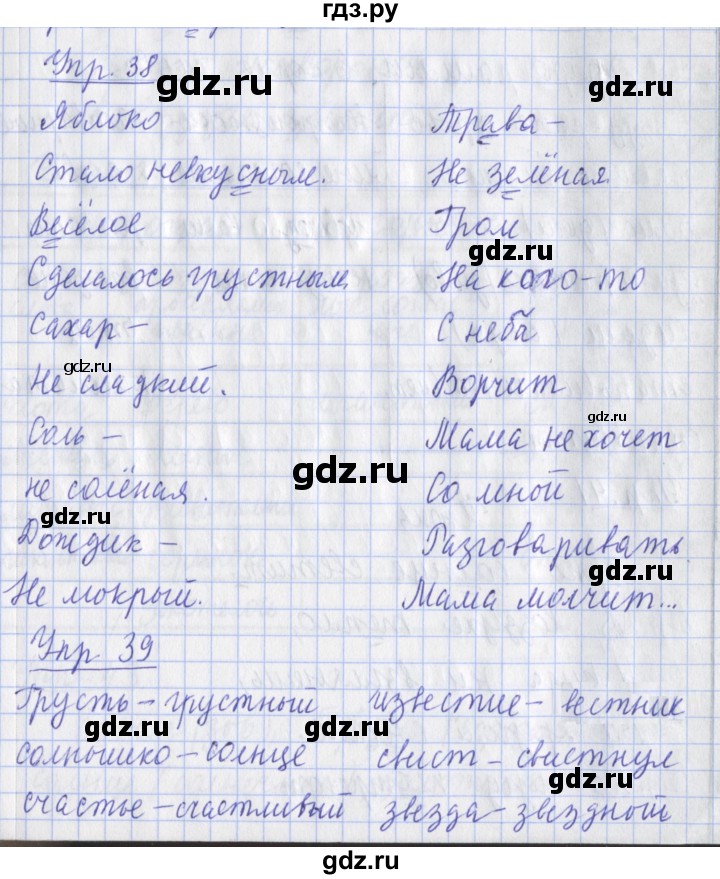 гдз.ру
Упр. 38
gdz.ru
gdz.ru
Яблоко
Стало невкусным.
gdz.ru
Весёлое
Сделалось грустным,
gdz.ru
Сахар –
gdz.ru
Не сладкий.
Соль –
gdz.ru
не солёная.
gdz.ru
Дождик –
Не мокрый.
Трава –
Не зелёная.
gdz.ru
Гром
gdz.ru
На кого-то
С неба
Ворчит
gdz.ru
Мама не хочет
Со мной
Разговаривать
gdz.ru
Мама молчит...
Упр 39
Грусть – грустный известие – вестник
gdz.ru gdz.ru
солнышко – солнце свист – свистнул
gdz.ru
счастье – счастливый звезда – звездный
gdz.ru